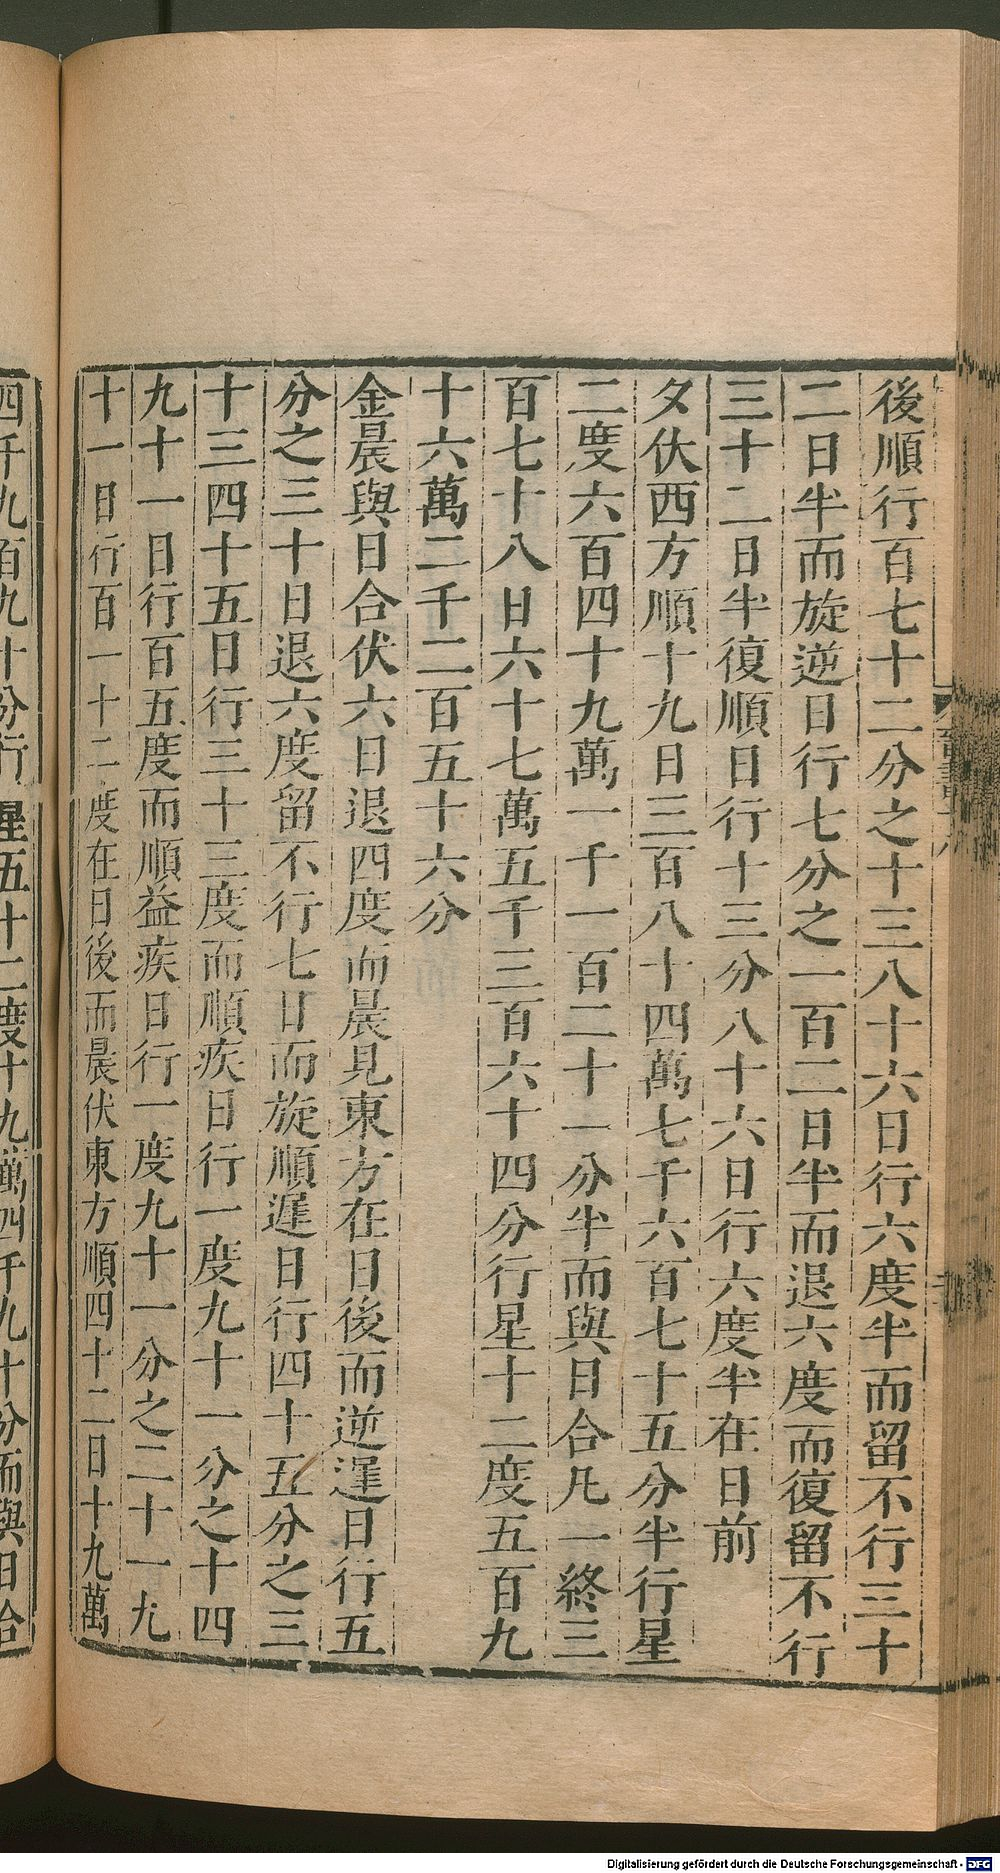 後順行百七十二分之十三八十六日行六度半而留不行三十
二日半而旋逆日行七分之一百二日半而退六度而復留不行
三十二日半復順日行十三分八十六日行六度半在日前
夕伏西方順十九日三百八十四萬七千六百七十五分半行星
二度六百四十九萬一千一百二十一分半而與日合凡一終三
百七十八日六十七萬五千三百六十四分行星十二度五百九
十六萬二千二百五十六分
金晨與日合伏六日退四度而晨見東方在日後而逆遲日行五
分之三十日退六度留不行七日而旋順遲日行四十五分之三
十三四十五日行三十三度而順疾日行一度九十一分之十四
九十一日行百五度而順益疾日行一度九十一分之二十一九
十一日行百一十二度在日後而晨伏東方順四十二日十九萬
四千九百九十分行星五十二度十九萬四千九十分而與日合
Digitalisierung gefördert durch die Deutsche Forschungsgemeinschaft - DFG